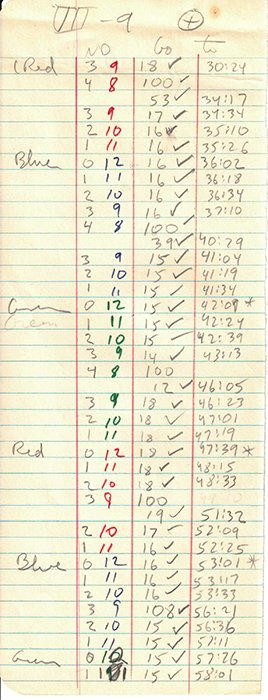 VIII-9 +
NO Go to
(Red 3 9 18 ✓ 30:24
4 8 100 ✓
53 ✓ 34:17
3 9 17 ✓ 34:34
2 10 16 ✓ 35:10
1 11 16 ✓ 35:26
Blue 0 12 16 ✓ 36:02
1 11 16 ✓ 36:18
2 10 16 ✓ 36:34
3 9 16 ✓ 37:10
4 8 100
39 ✓ 40:29
3 9 15 ✓ 41:04
2 10 15 ✓ 41:19
1 11 15 ✓ 41:34
Green 0 12 15 ✓ 42:09 *
Green 1 11 15 ✓ 42:24
2 10 15 42:39
3 9 14 ✓ 43:13
4 8 100
12 ✓ 46:05
3 9 18 ✓ 46:23
2 10 18 ✓ 47:01
1 11 18 ✓ 47:19
Red 0 12 18 ✓ 47:39 *
1 11 18 ✓ 48:15
2 10 18 ✓ 48:33
3 9 100
19 ✓ 51:32
2 10 17 52:09
1 11 16 ✓ 52:25
Blue 0 12 16 ✓ 53:01 *
1 11 16 ✓ 53:17
2 10 16 ✓ 53:33
3 9 108 ✓ 56:21
2 10 15 ✓ 56:36
1 11 15 ✓ 57:11
Green 0 15 ✓ 57:26
1 15 ✓ 58:01